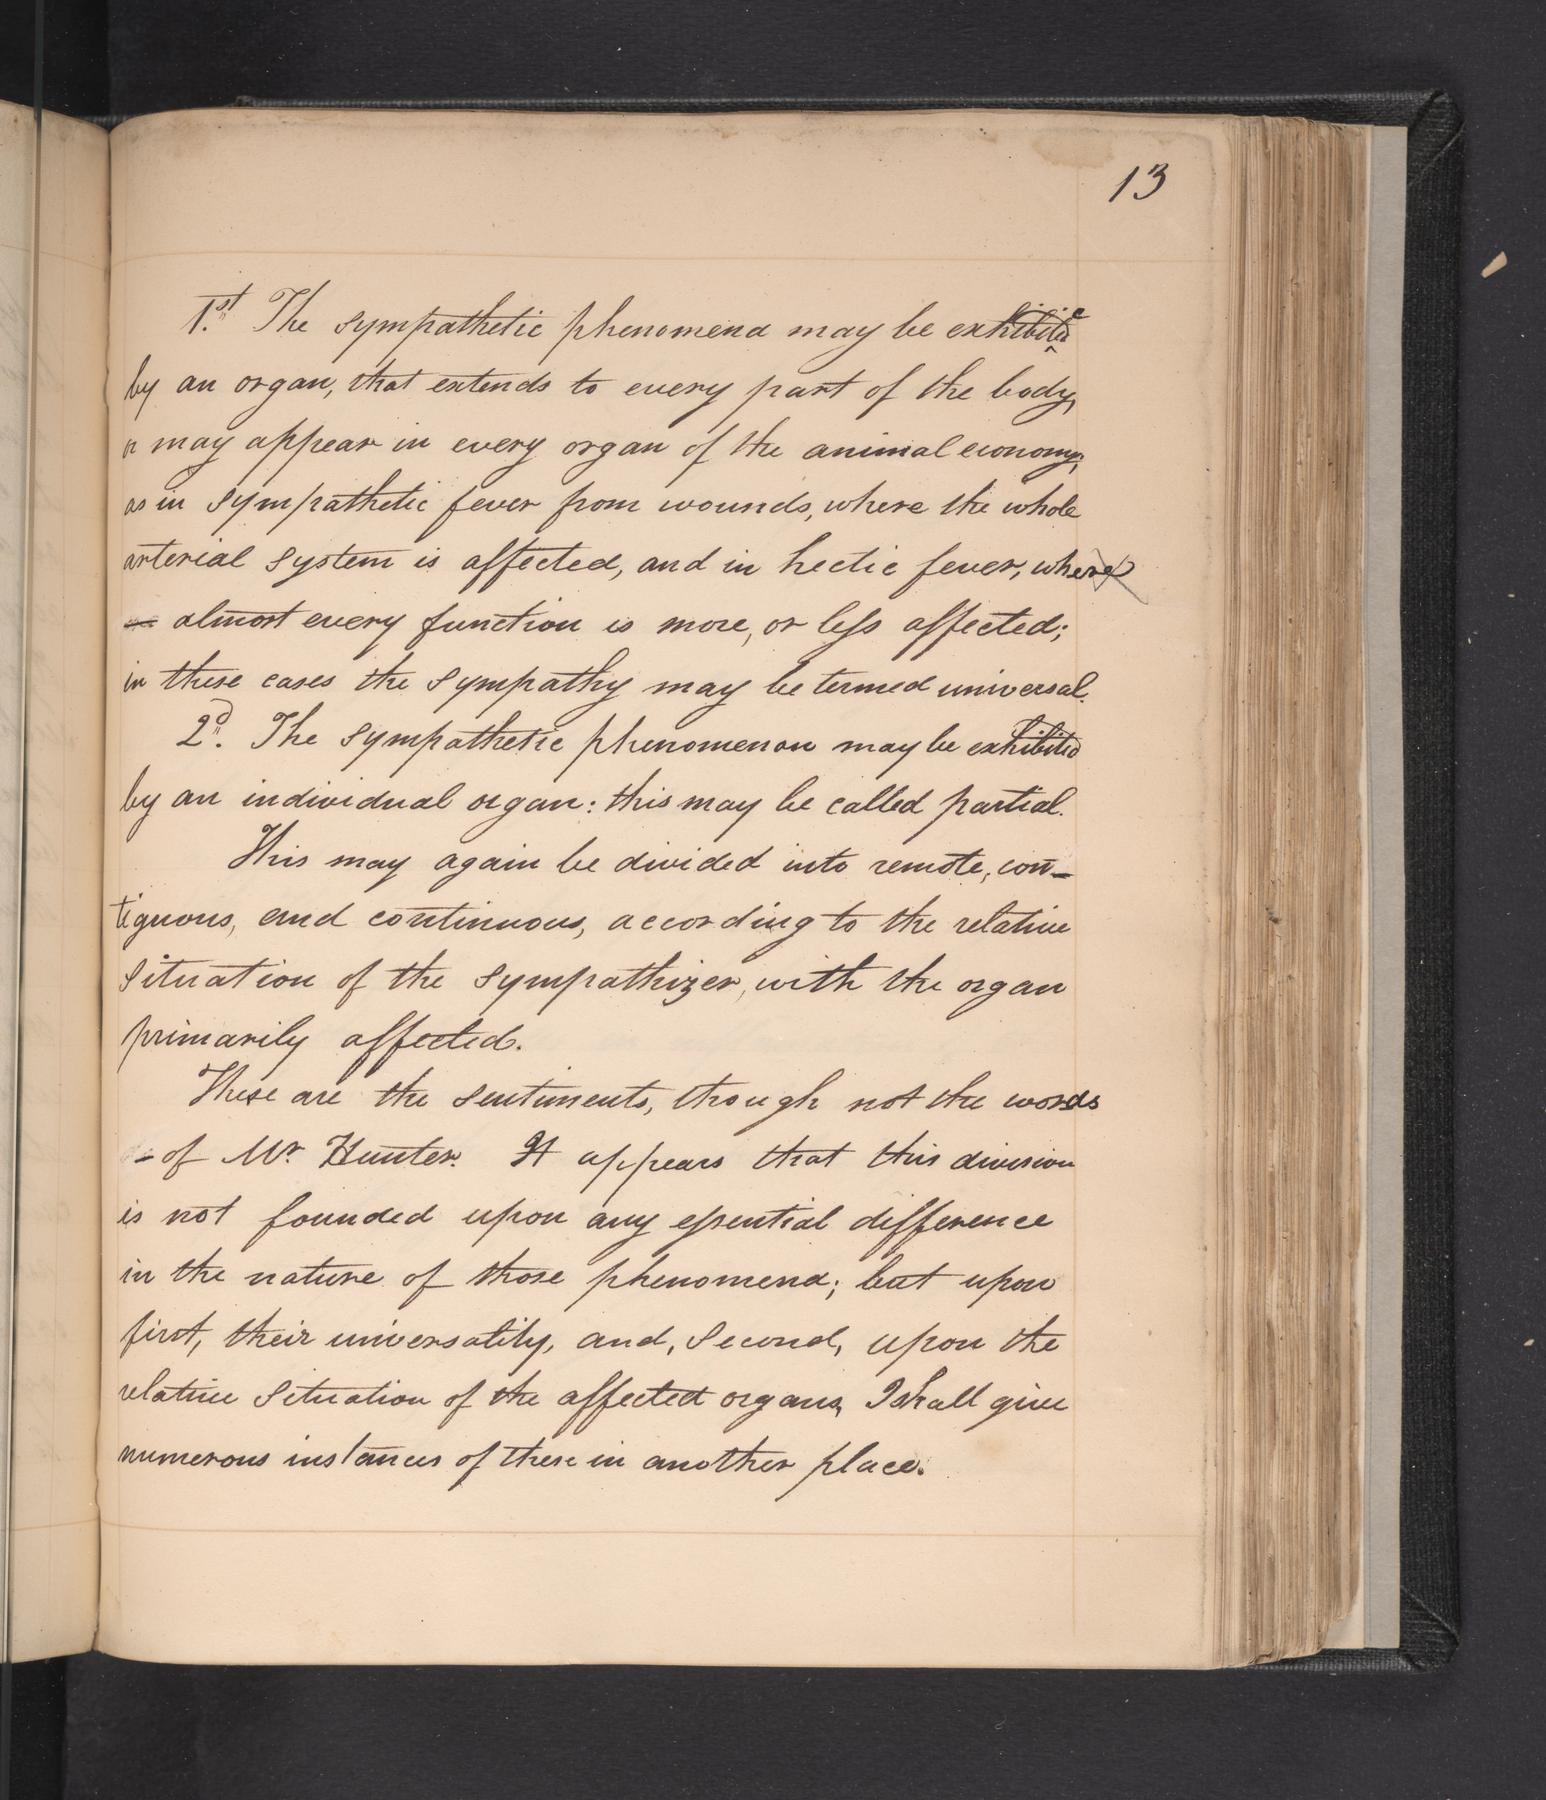 13
1.st The sympathetic phenomena may be exhibited
by an organ, that extends to every part of the body,
or may appear in every organ of the animal economy,
as in sympathetic fever from wounds, where the whole
arterial system is affected, and in hectic fever, where
almost every function is more, or less affected;
in these cases the sympathy may be termed universal.
2d. The sympathetic phenomenon may be exhibited
by an individual organ: this may be called partial.
This may again be divided into remote, con-
tiguous, and continuous, according to the relative
situation of the sympathizer, with the organ
primarily affected.
These are the sentiments, though not the words
of Mr. Hunter. It appears that this division
is not founded upon any essential difference
in the nature of those phenomena; but upon
first, their universality, and, second, upon the
relative situation of the affected organs, I shall give
numerous instances of these in another place.